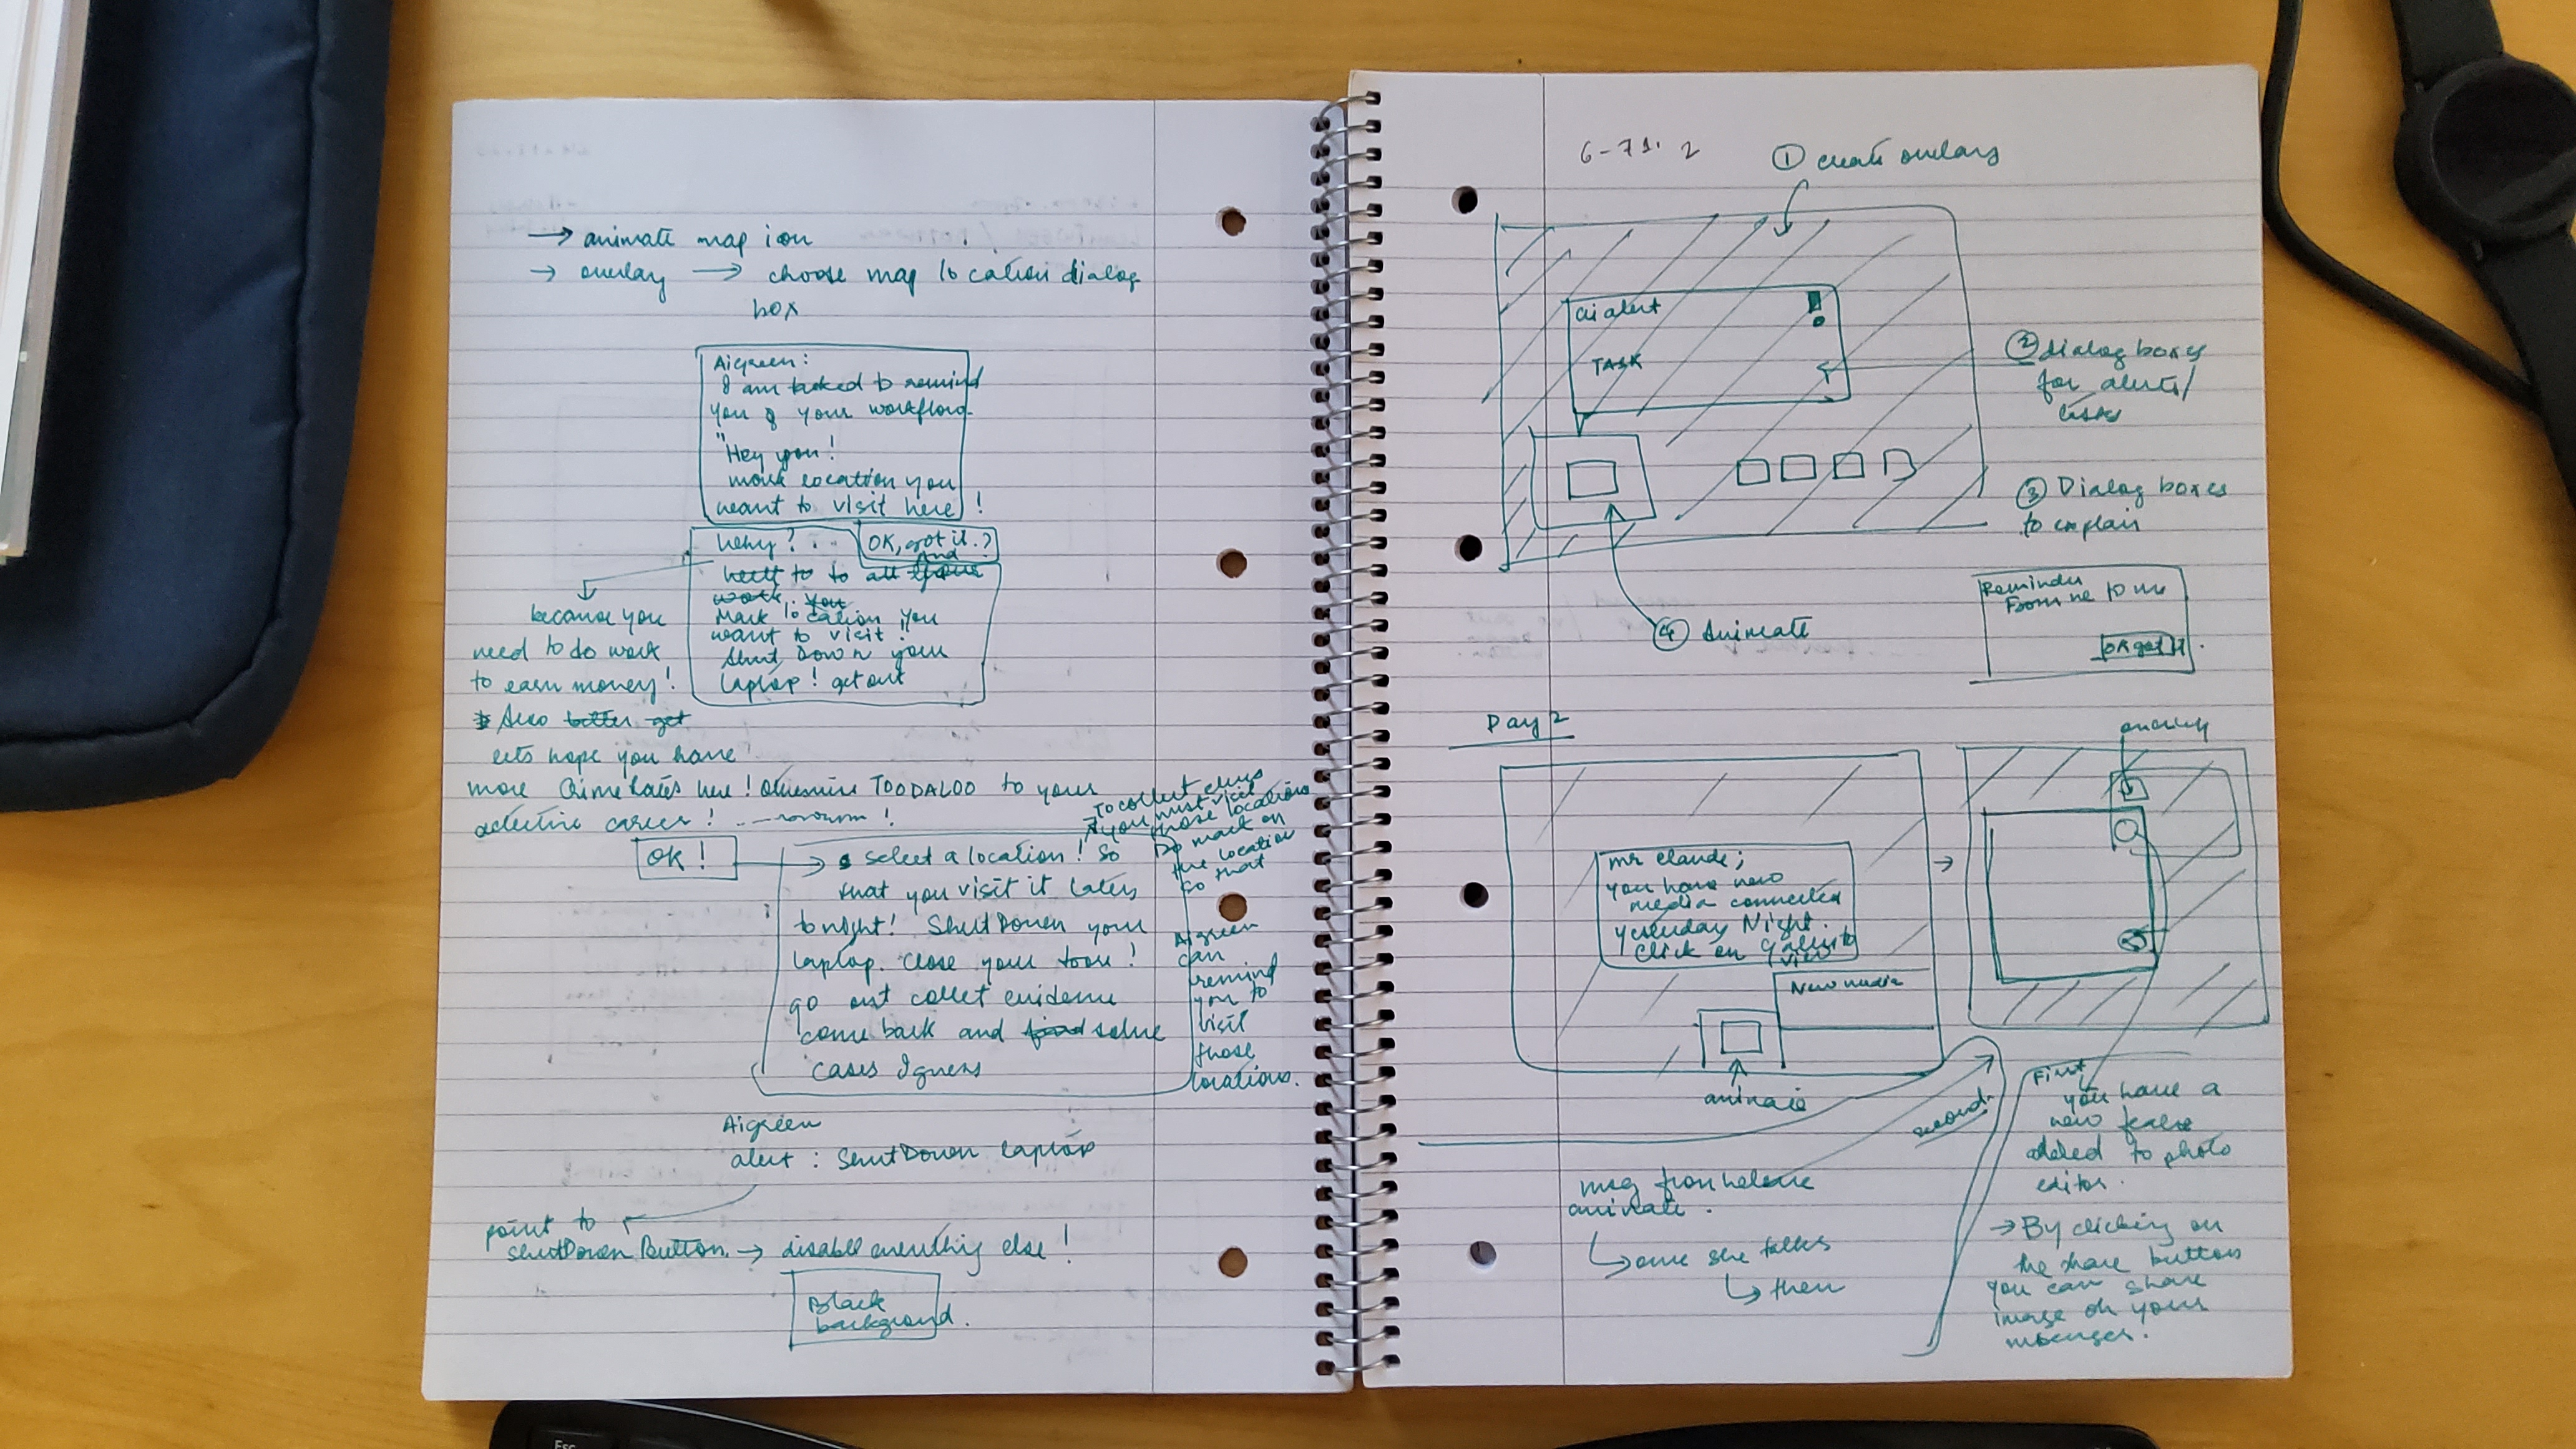 → animate map icon
→ overlay → choose map location dialog
box
Aigreen:
I am tasked to remind
you of your workflow
"Hey you!
mark location you
want to visit here!
Why?..
OK, got it.?
And
to all
work. you
Mark location you
want to visit!
Shut Down your
laptop! get out
because you
need to do work
to earn money!
Also better get
lets hope you have
more Crime rates here! Otherwise TOODALOO to your
detective career!
OK!
→ select a location! So
that you visit it later
tonight! ShutDown your
laptop. Close your
go out collet evidence
come back and find solve
cases Igness
To collect clues
you must visit
those locations
Do mark on
the location
so that
Aigreen
can
remind
you to
visit
those
locations.
Aigreen
alert : ShutDown laptop
point to
shutDown Button → disable everything else!
Black
background.
① create overlay
ai alert
TASK
② dialog boxes
for alerts/
tasks
③ Dialog boxes
to explain
④ Animate
Reminder
From me to me
OK got it.
Day 2
mr claude;
you have new
media connected
yesterday Night.
Click on to
view
New media
animate
→
First
you have a
new
added to photo
editor.
→ By clicking on
the share button
you can share
image on your
second
msg from
animate.
↳ once she talks
↳ then